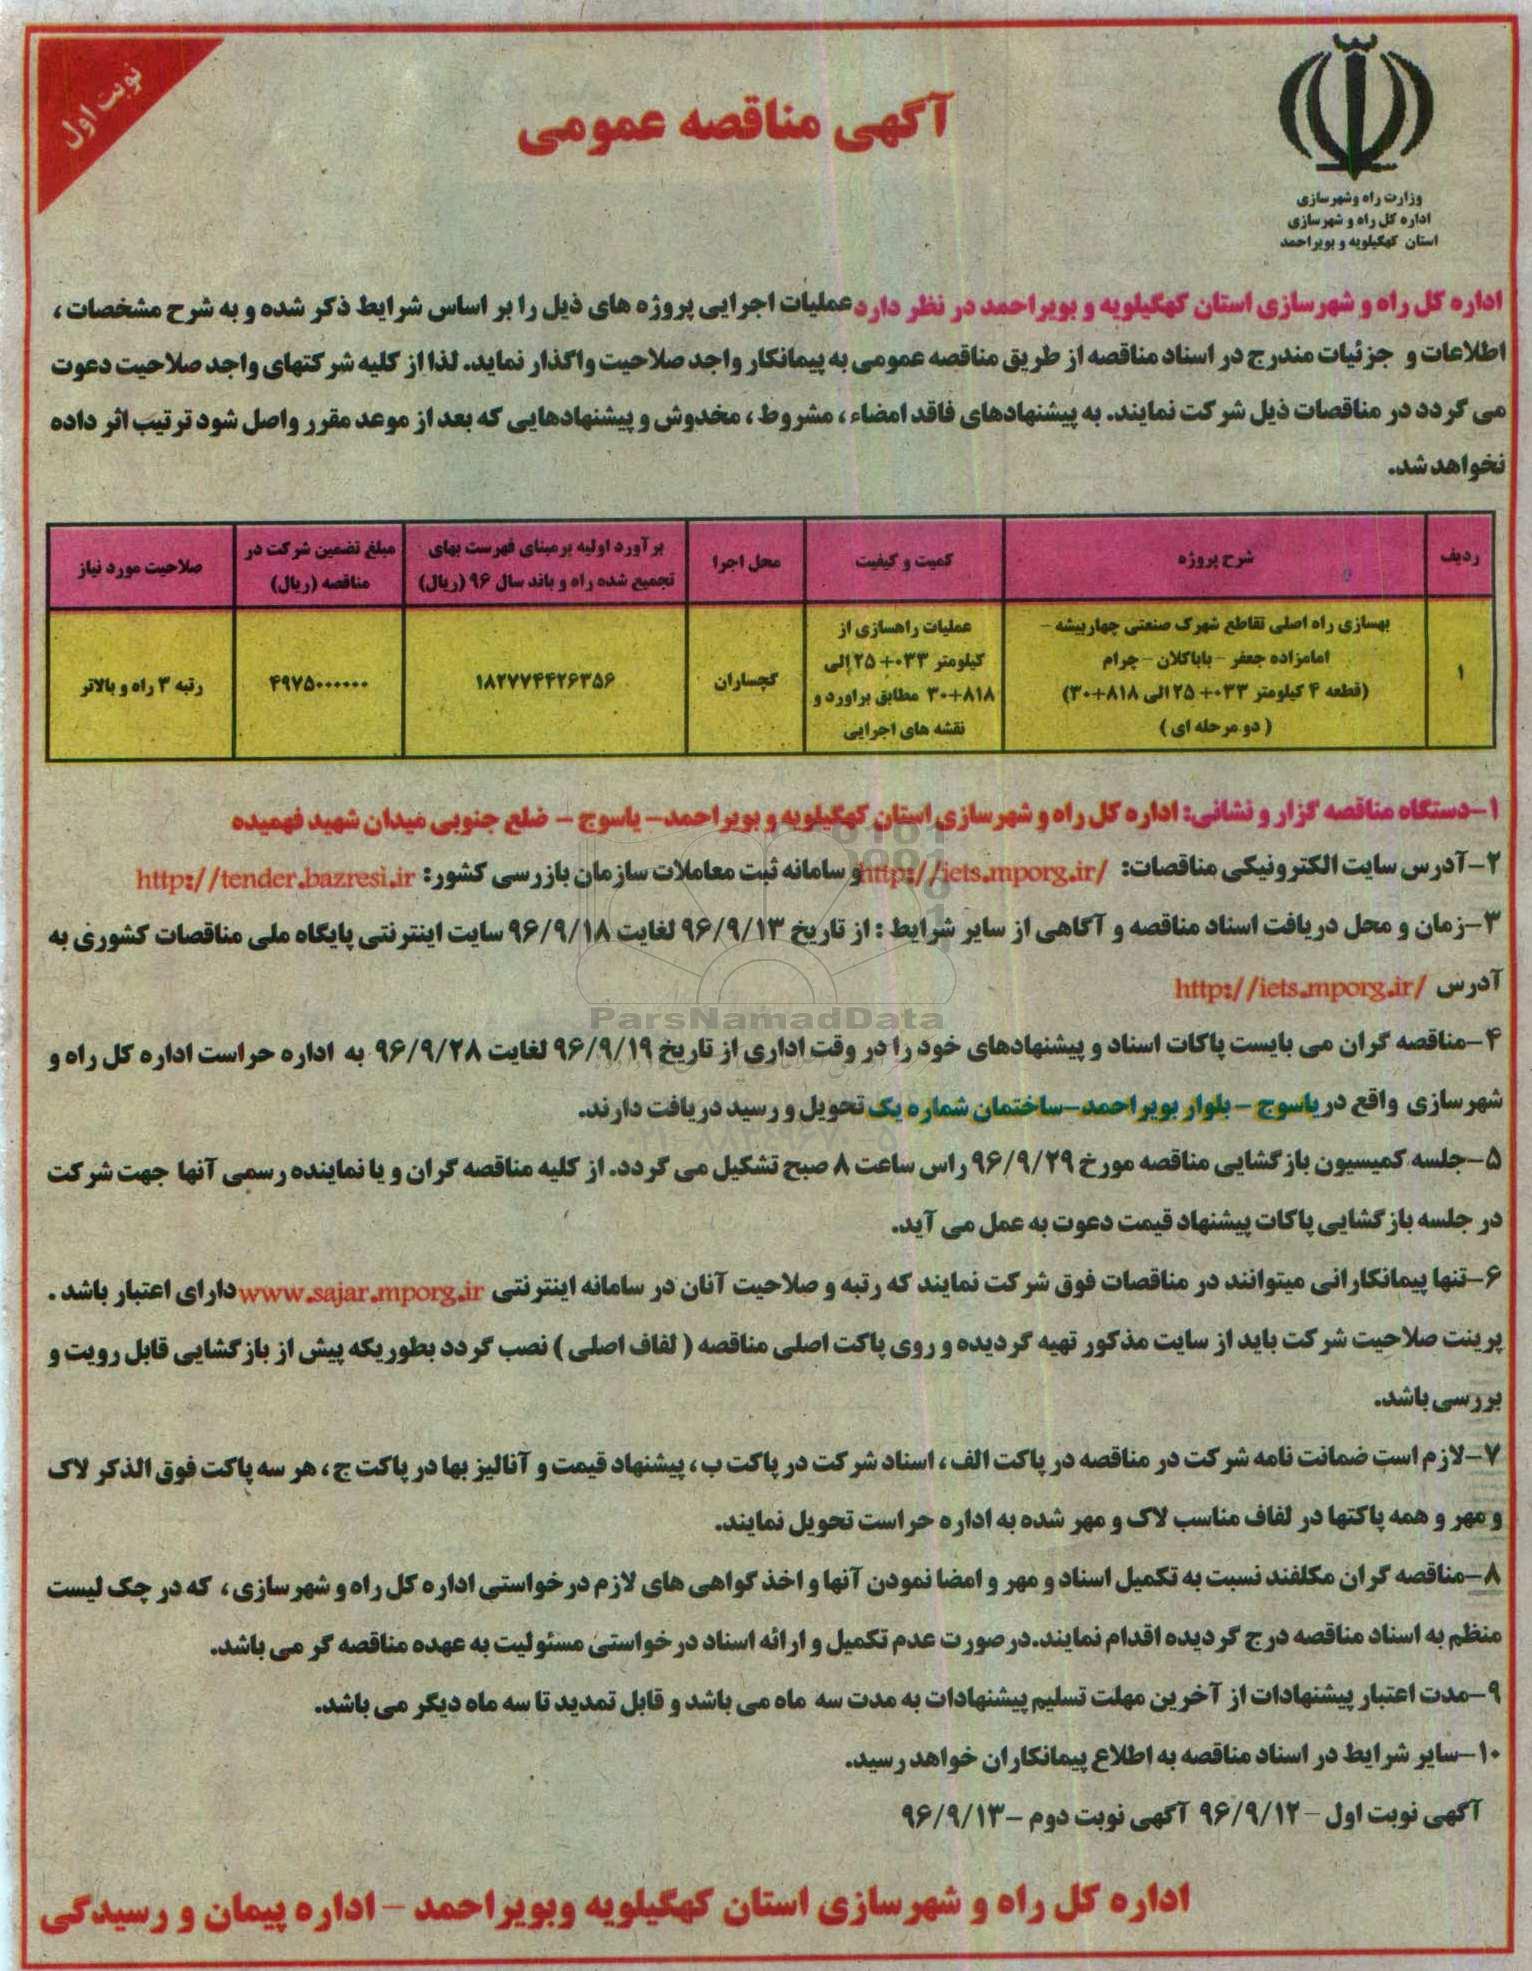 نوبت اول
وزارت راه وشهرسازی
اداره کل راه و شهرسازی
استان کهگیلویه و بویراحمد
آگهی مناقصه عمومی
اداره کل راه و شهرسازی استان کهگیلویه و بویراحمد در نظر دارد عملیات اجرایی پروژه های ذیل را بر اساس شرایط ذکر شده و به شرح مشخصات ،
اطلاعات و جزئیات مندرج در اسناد مناقصه از طریق مناقصه عمومی به پیمانکار واجد صلاحیت واگذار نماید. لذا از کلیه شرکتهای واجد صلاحیت دعوت
می گردد در مناقصات ذیل شرکت نمایند. به پیشنهادهای فاقد امضاء ، مشروط ، مخدوش و پیشنهادهایی که بعد از موعد مقرر واصل شود ترتیب اثر داده
نخواهد شد.
ردیف
شرح پروژه
کمیت و کیفیت
محل اجرا
برآورد اولیه برمبنای فهرست بهای
تجمیع شده راه و باند سال ۹۶ (ریال)
مبلغ تضمین شرکت در
مناقصه (ریال)
صلاحیت مورد نیاز
۱
بهسازی راه اصلی تقاطع شهرک صنعتی چهاربیشه -
امامزاده جعفر - باباکلان - چرام
(قطعه ۴ کیلومتر ۰۳۳+۲۵ الی ۸۱۸+۳۰)
( دو مرحله ای )
عملیات راهسازی از
کیلومتر ۰۳۳+۲۵ الی
۸۱۸+۳۰ مطابق براورد و
نقشه های اجرایی
گچساران
۱۸۲۷۷۴۴۲۶۳۵۶
۴۹۷۵۰۰۰۰۰۰
رتبه ۳ راه و بالاتر
۱-دستگاه مناقصه گزار و نشانی: اداره کل راه و شهرسازی استان کهگیلویه و بویراحمد- یاسوج - ضلع جنوبی میدان شهید فهمیده
۲-آدرس سایت الکترونیکی مناقصات: http://iets.mporg.ir/ و سامانه ثبت معاملات سازمان بازرسی کشور: http://tender.bazresi.ir
۳-زمان و محل دریافت اسناد مناقصه و آگاهی از سایر شرایط : از تاریخ ۹۶/۹/۱۳ لغایت ۹۶/۹/۱۸ سایت اینترنتی پایگاه ملی مناقصات کشوری به
آدرس http://iets.mporg.ir/
ParsNamadData
۴-مناقصه گران می بایست پاکات اسناد و پیشنهادهای خود را در وقت اداری از تاریخ ۹۶/۹/۱۹ لغایت ۹۶/۹/۲۸ به اداره حراست اداره کل راه و
شهرسازی واقع در یاسوج - بلوار بویراحمد-ساختمان شماره یک تحویل و رسید دریافت دارند.
۵-جلسه کمیسیون بازگشایی مناقصه مورخ ۹۶/۹/۲۹ راس ساعت ۸ صبح تشکیل می گردد. از کلیه مناقصه گران و یا نماینده رسمی آنها جهت شرکت
در جلسه بازگشایی پاکات پیشنهاد قیمت دعوت به عمل می آید.
۶-تنها پیمانکارانی میتوانند در مناقصات فوق شرکت نمایند که رتبه و صلاحیت آنان در سامانه اینترنتی www.sajar.mporg.ir دارای اعتبار باشد .
پرینت صلاحیت شرکت باید از سایت مذکور تهیه گردیده و روی پاکت اصلی مناقصه ( لفاف اصلی ) نصب گردد بطوریکه پیش از بازگشایی قابل رویت و
بررسی باشد.
۷-لازم است ضمانت نامه شرکت در مناقصه در پاکت الف ، اسناد شرکت در پاکت ب ، پیشنهاد قیمت و آنالیز بها در پاکت ج ، هر سه پاکت فوق الذکر لاک
و مهر و همه پاکتها در لفاف مناسب لاک و مهر شده به اداره حراست تحویل نمایند.
۸-مناقصه گران مکلفند نسبت به تکمیل اسناد و مهر و امضا نمودن آنها و اخذ گواهی های لازم درخواستی اداره کل راه و شهرسازی ، که در چک لیست
منظم به اسناد مناقصه درج گردیده اقدام نمایند.درصورت عدم تکمیل و ارائه اسناد درخواستی مسئولیت به عهده مناقصه گر می باشد.
۹-مدت اعتبار پیشنهادات از آخرین مهلت تسلیم پیشنهادات به مدت سه ماه می باشد و قابل تمدید تا سه ماه دیگر می باشد.
۱۰-سایر شرایط در اسناد مناقصه به اطلاع پیمانکاران خواهد رسید.
آگهی نوبت اول - ۹۶/۹/۱۲ آگهی نوبت دوم - ۹۶/۹/۱۳
اداره کل راه و شهرسازی استان کهگیلویه وبویراحمد - اداره پیمان و رسیدگی